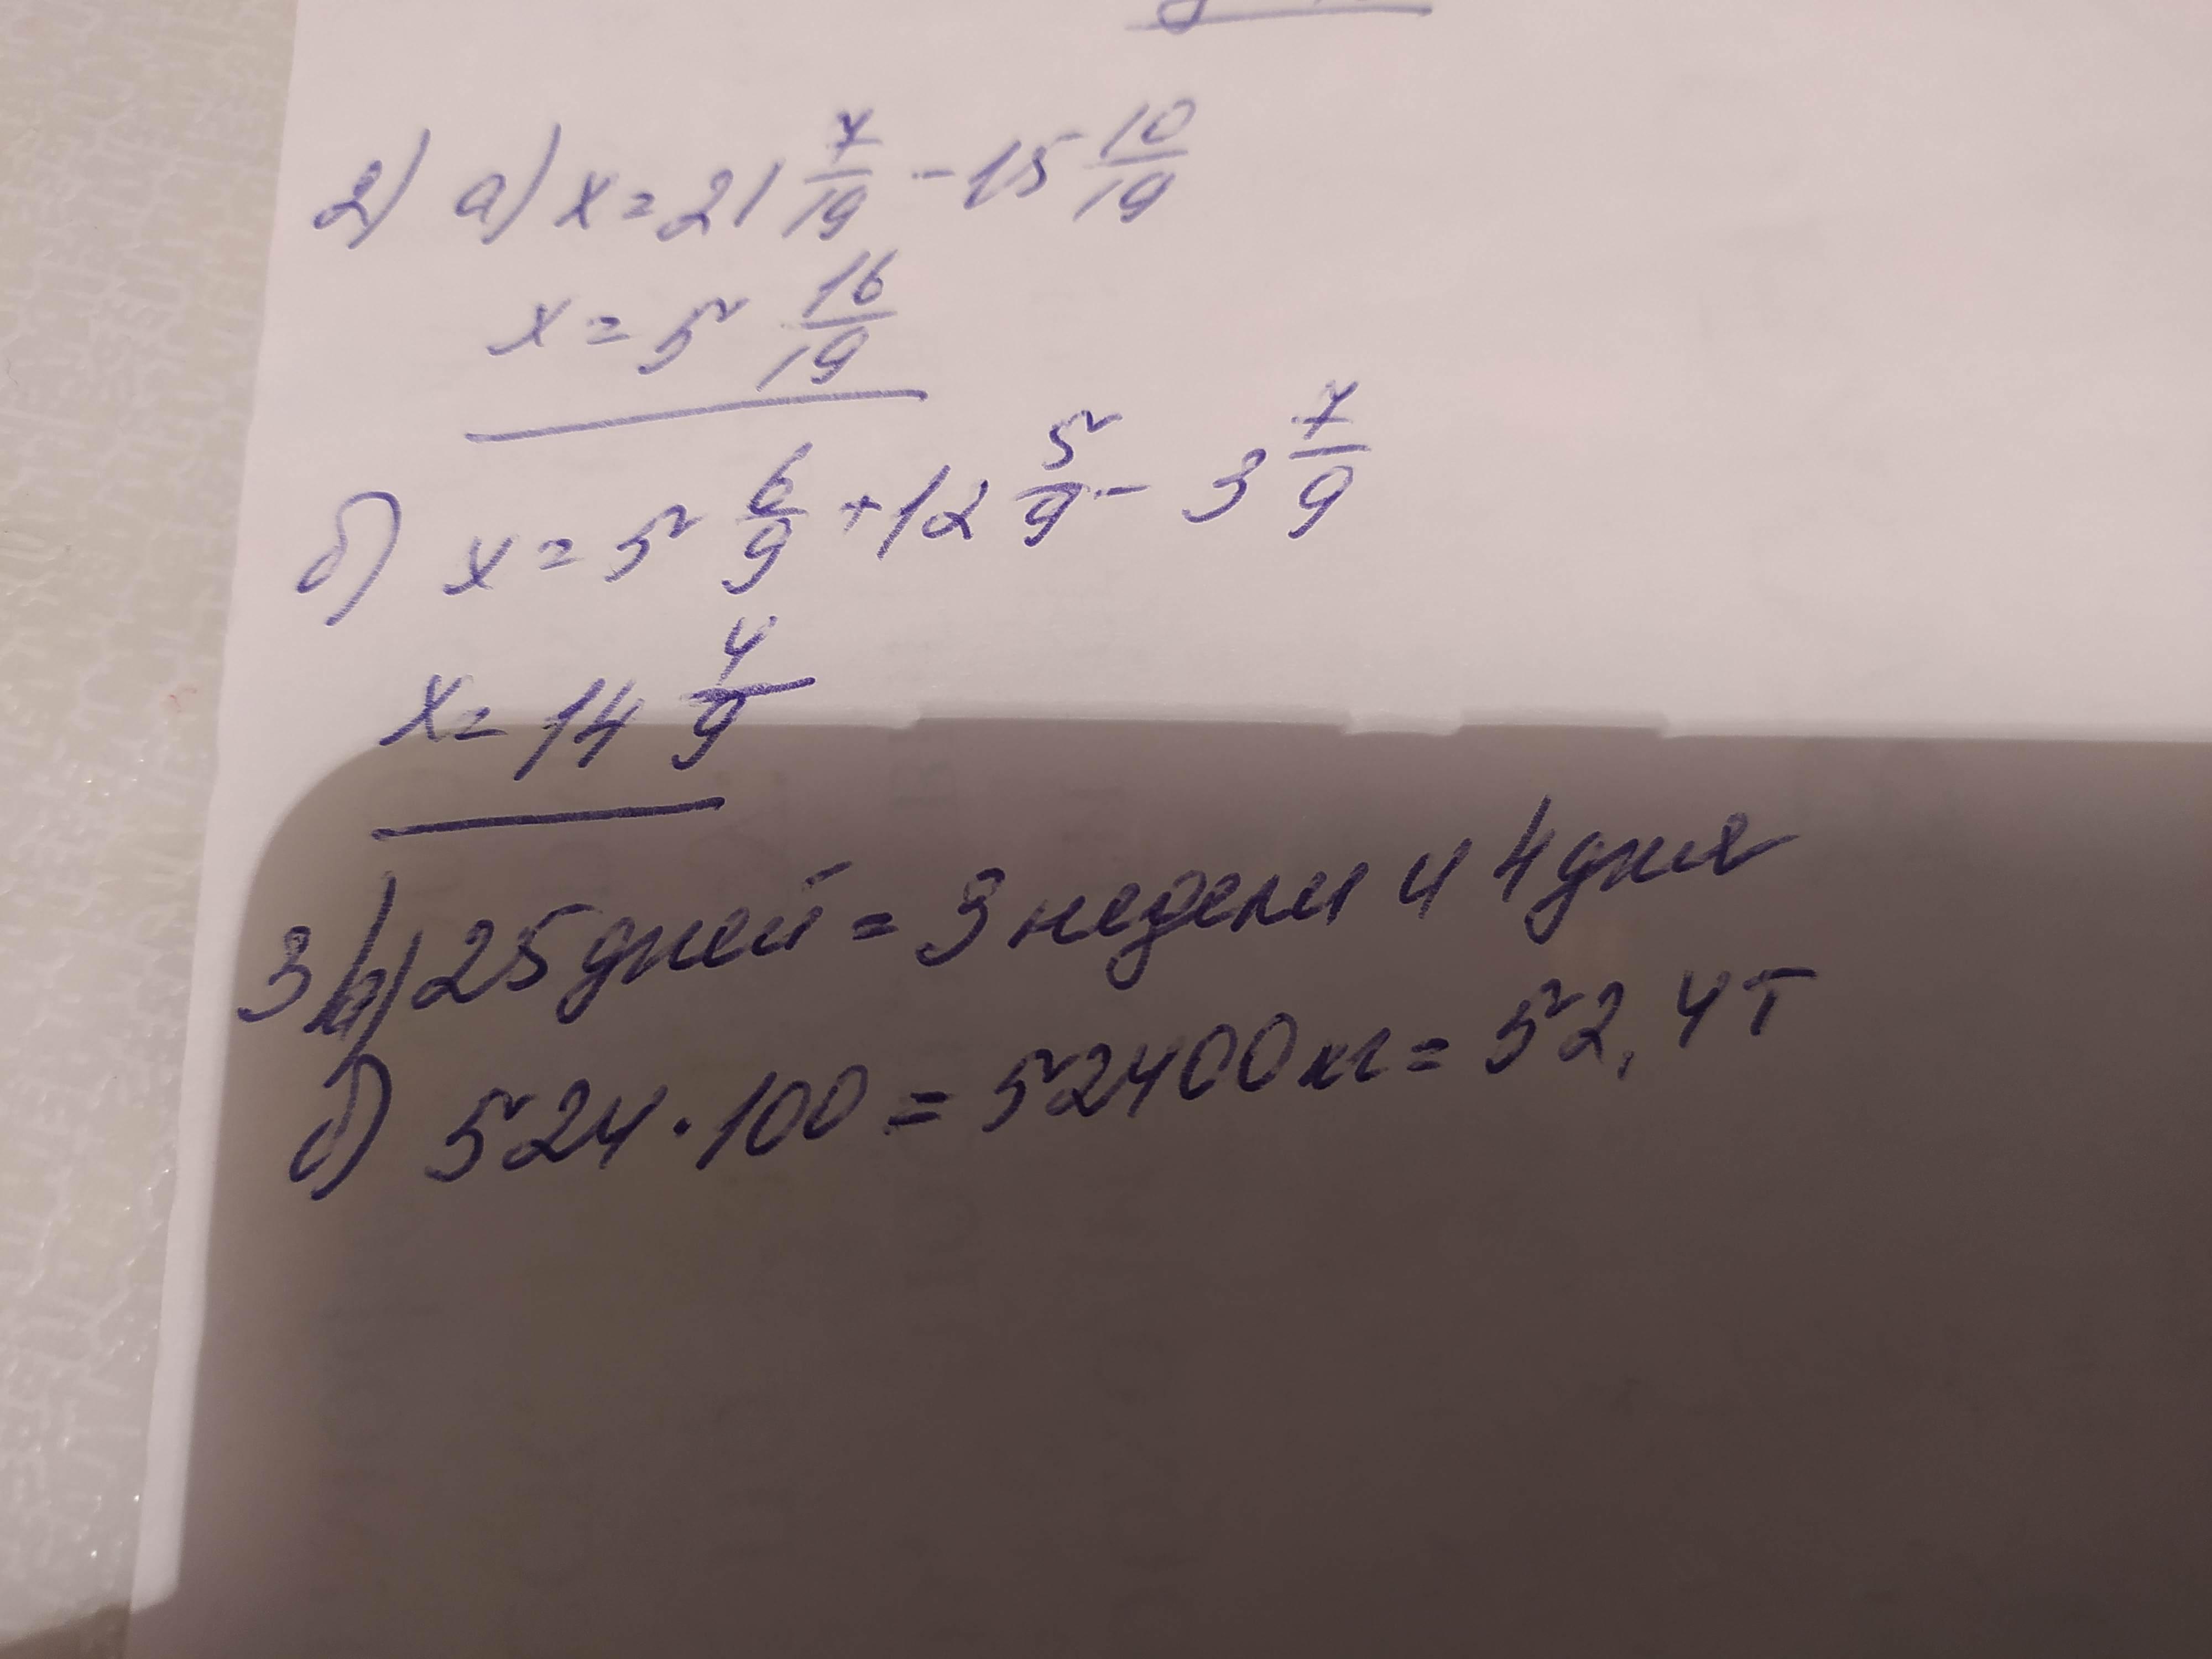 2) а) x = 21 7/19 - 15 10/19
x = 5 16/19
б) x = 5 6/9 + 12 5/9 - 3 7/9
x = 14 4/9
3) а) 25 дней = 3 недели и 4 дня
б) 524 · 100 = 52400 кг = 52,4 т